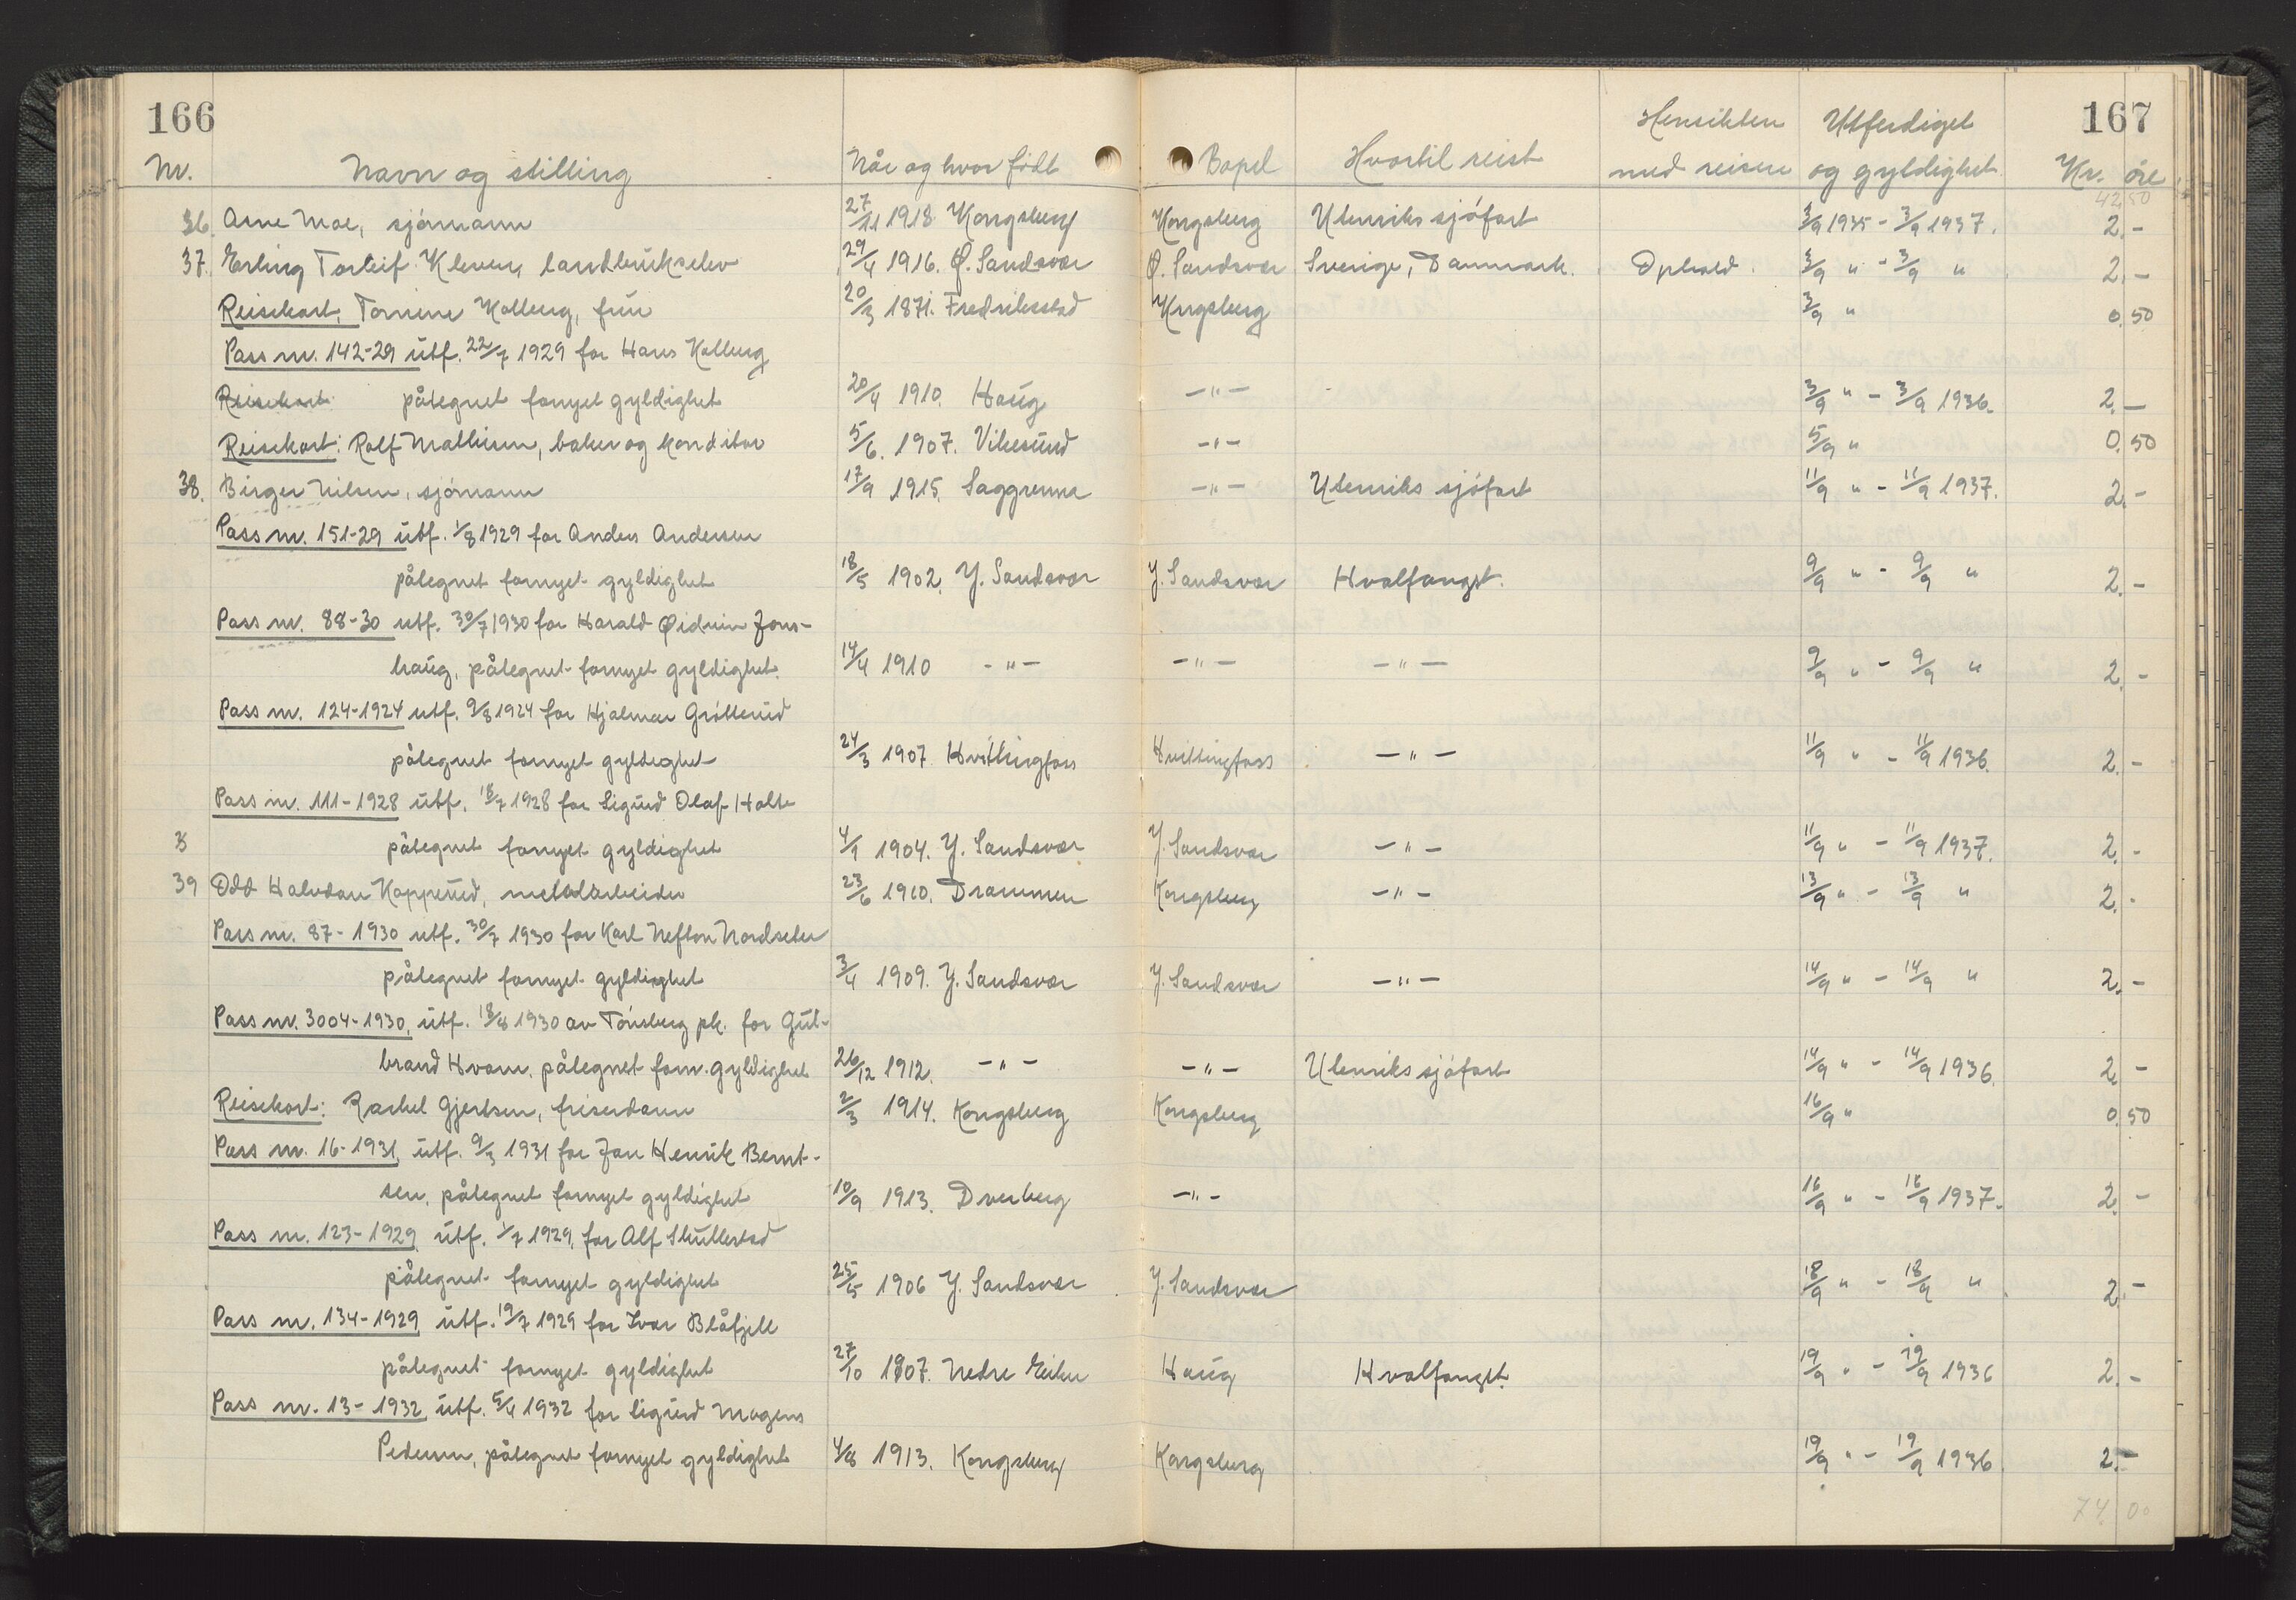 166
167
Nr. Navn og stilling Når og hvor født Bopel Hvortil reist Hensikten med reisen Utferdiget og gyldighet Kr. øre
42,50
36. Arne Moe, sjömann 27/11 1918 Kongsberg Kongsberg Utenriks sjöfart 3/9 1935 - 3/9 1937. 2.-
37. Erling Torleif Kleven, landbrukselev 29/4 1916. Ø. Sandsvær Ø. Sandsvær Sverige, Danmark. Ophold. 3/9 " - 3/9 " 2.-
Reisekort, Tomine Kolberg, frue 20/3 1871. Fredriksstad Kongsberg 3/9 " 0.50
Pass nr. 142-29 utf. 22/7 1929 for Hans Kolberg
Reisekort påtegnet fornyet gyldighet 20/4 1910. Haug -"- 3/9 " - 3/9 1936. 2.-
Reisekort: Rolf Mathisen, baker og konditor 5/6. 1907. Vikesund -"- 5/9 " 0.50
38. Birger Nilsen, sjömann 17/9 1915. Saggrenna -"- Utenriks sjöfart 11/9 " - 11/9 1937. 2.-
Pass nr. 151-29 utf. 1/8 1929 for Anders Andersen
påtegnet fornyet gyldighet 18/5 1902. Y. Sandsvær Y. Sandsvær Hvalfangst. 9/9 " - 9/9 " 2.-
Pass nr. 88-30 utf. 30/7 1930 for Harald Øidvin Jons-
haug, påtegnet fornyet gyldighet. 14/4 1910 -"- -"- -"- 9/9 " - 9/9 " 2.-
Pass nr. 124-1924 utf. 9/8 1924 for Hjalmar Gröterud
påtegnet fornyet gyldighet 24/3 1907 Hvittingfoss Hvittingfoss -"- 11/9 " - 11/9 1936. 2.-
Pass nr. 111-1928 utf. 18/7 1928 for Sigurd Olaf Holte
påtegnet fornyet gyldighet 4/9 1904. Y. Sandsvær Y. Sandsvær -"- 11/9 " - 11/9 1937. 2.-
39 Odd Halvdan Kopperud, metalarbeider 23/6 1910. Drammen Kongsberg -"- 13/9 " - 13/9 " 2.-
Pass nr. 87-1930 utf. 30/7 1930 for Karl Nefton Nordseter
påtegnet fornyet gyldighet 3/4 1909. Y. Sandsvær Y. Sandsvær -"- 14/9 " - 14/9 " 2.-
Pass nr. 3004-1930, utf. 18/8 1930 av Tönsberg pk. for Gul-
brand Hvam, påtegnet forn. gyldighet 26/12 1912. -"- -"- Utenriks sjöfart 14/9 " - 14/9 1936. 2.-
Reisekort: Rachel Gjertsen, friserdame 2/3 1914. Kongsberg Kongsberg 16/9 " 0.50
Pass nr. 16-1931, utf. 9/3 1931 for Jan Henrik Bernt-
sen, påtegnet fornyet gyldighet 10/9 1913. Dverberg -"- 16/9 " - 16/9 1937. 2.-
Pass nr. 123-1929 utf. 1/7 1929, for Alf Skullestad
påtegnet fornyet gyldighet 25/5 1906 Y. Sandsvær Y. Sandsvær 18/9 " - 18/9 " 2.-
Pass nr. 134-1929 utf. 19/7 1929 for Ivar Blåfjell
påtegnet fornyet gyldighet 27/10 1907. Nedre Eiker Haug Hvalfangst. 19/9 " - 19/9 1936 2.-
Pass nr. 13-1932 utf. 5/4 1932 for Sigurd Mogens
Pedersen, påtegnet fornyet gyldighet 4/8 1913. Kongsberg Kongsberg 19/9 " - 19/9 1936. 2.-
74.00